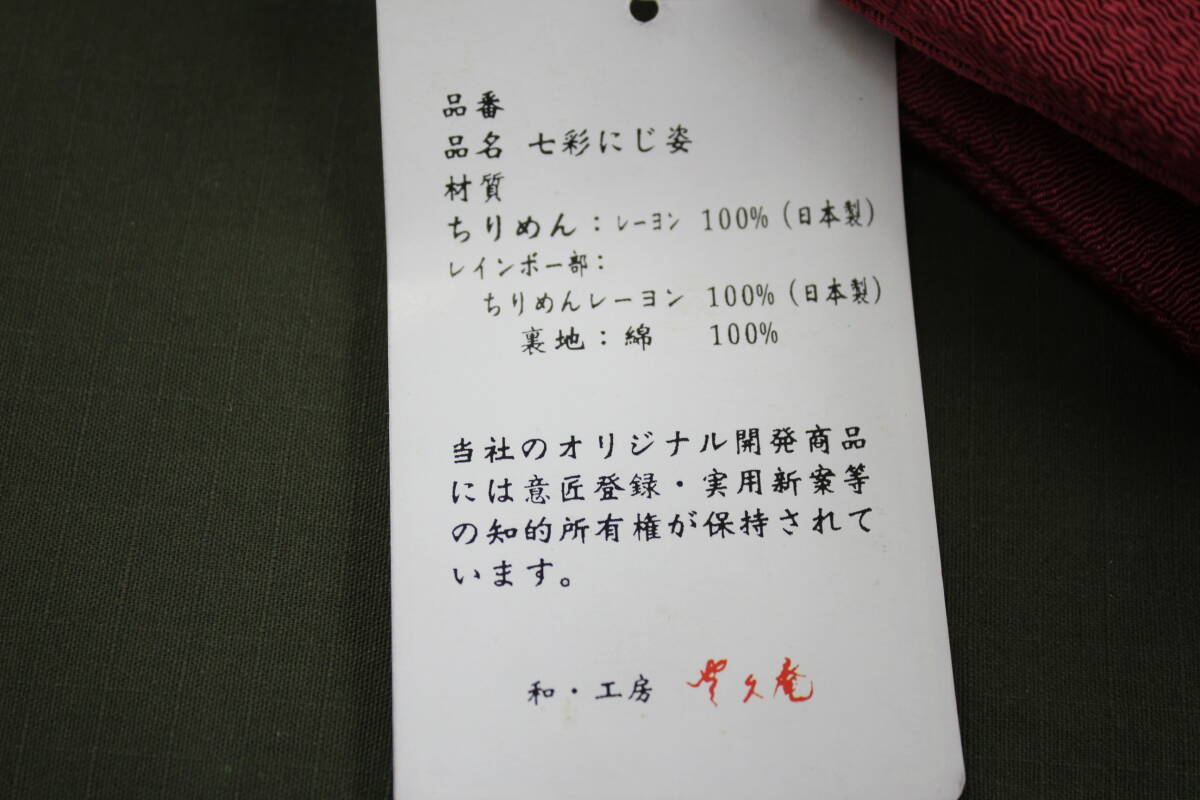 品番
品名 七彩にじ姿
材質
ちりめん：レーヨン 100%（日本製）
レインボー部：
ちりめんレーヨン 100%（日本製）
裏地：綿 100%
当社のオリジナル開発商品
には意匠登録・実用新案等
の知的所有権が保持されて
います。
和・工房 久庵